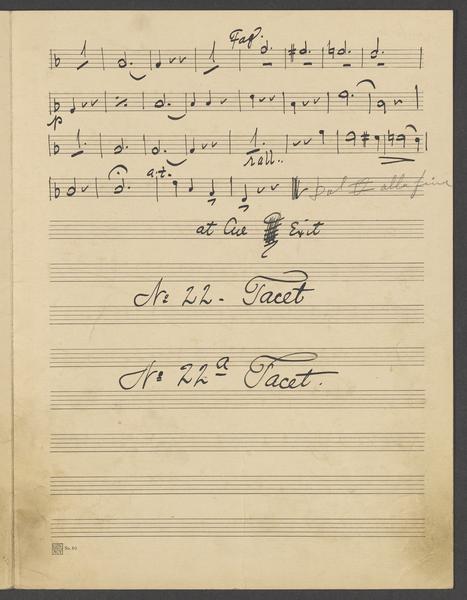 Fag.
1
1
p
1.
1.
rall..
a.t.
Dal alla fine
at Cue Exit
No 22 - Tacet
No 22a Tacet.
No. 10